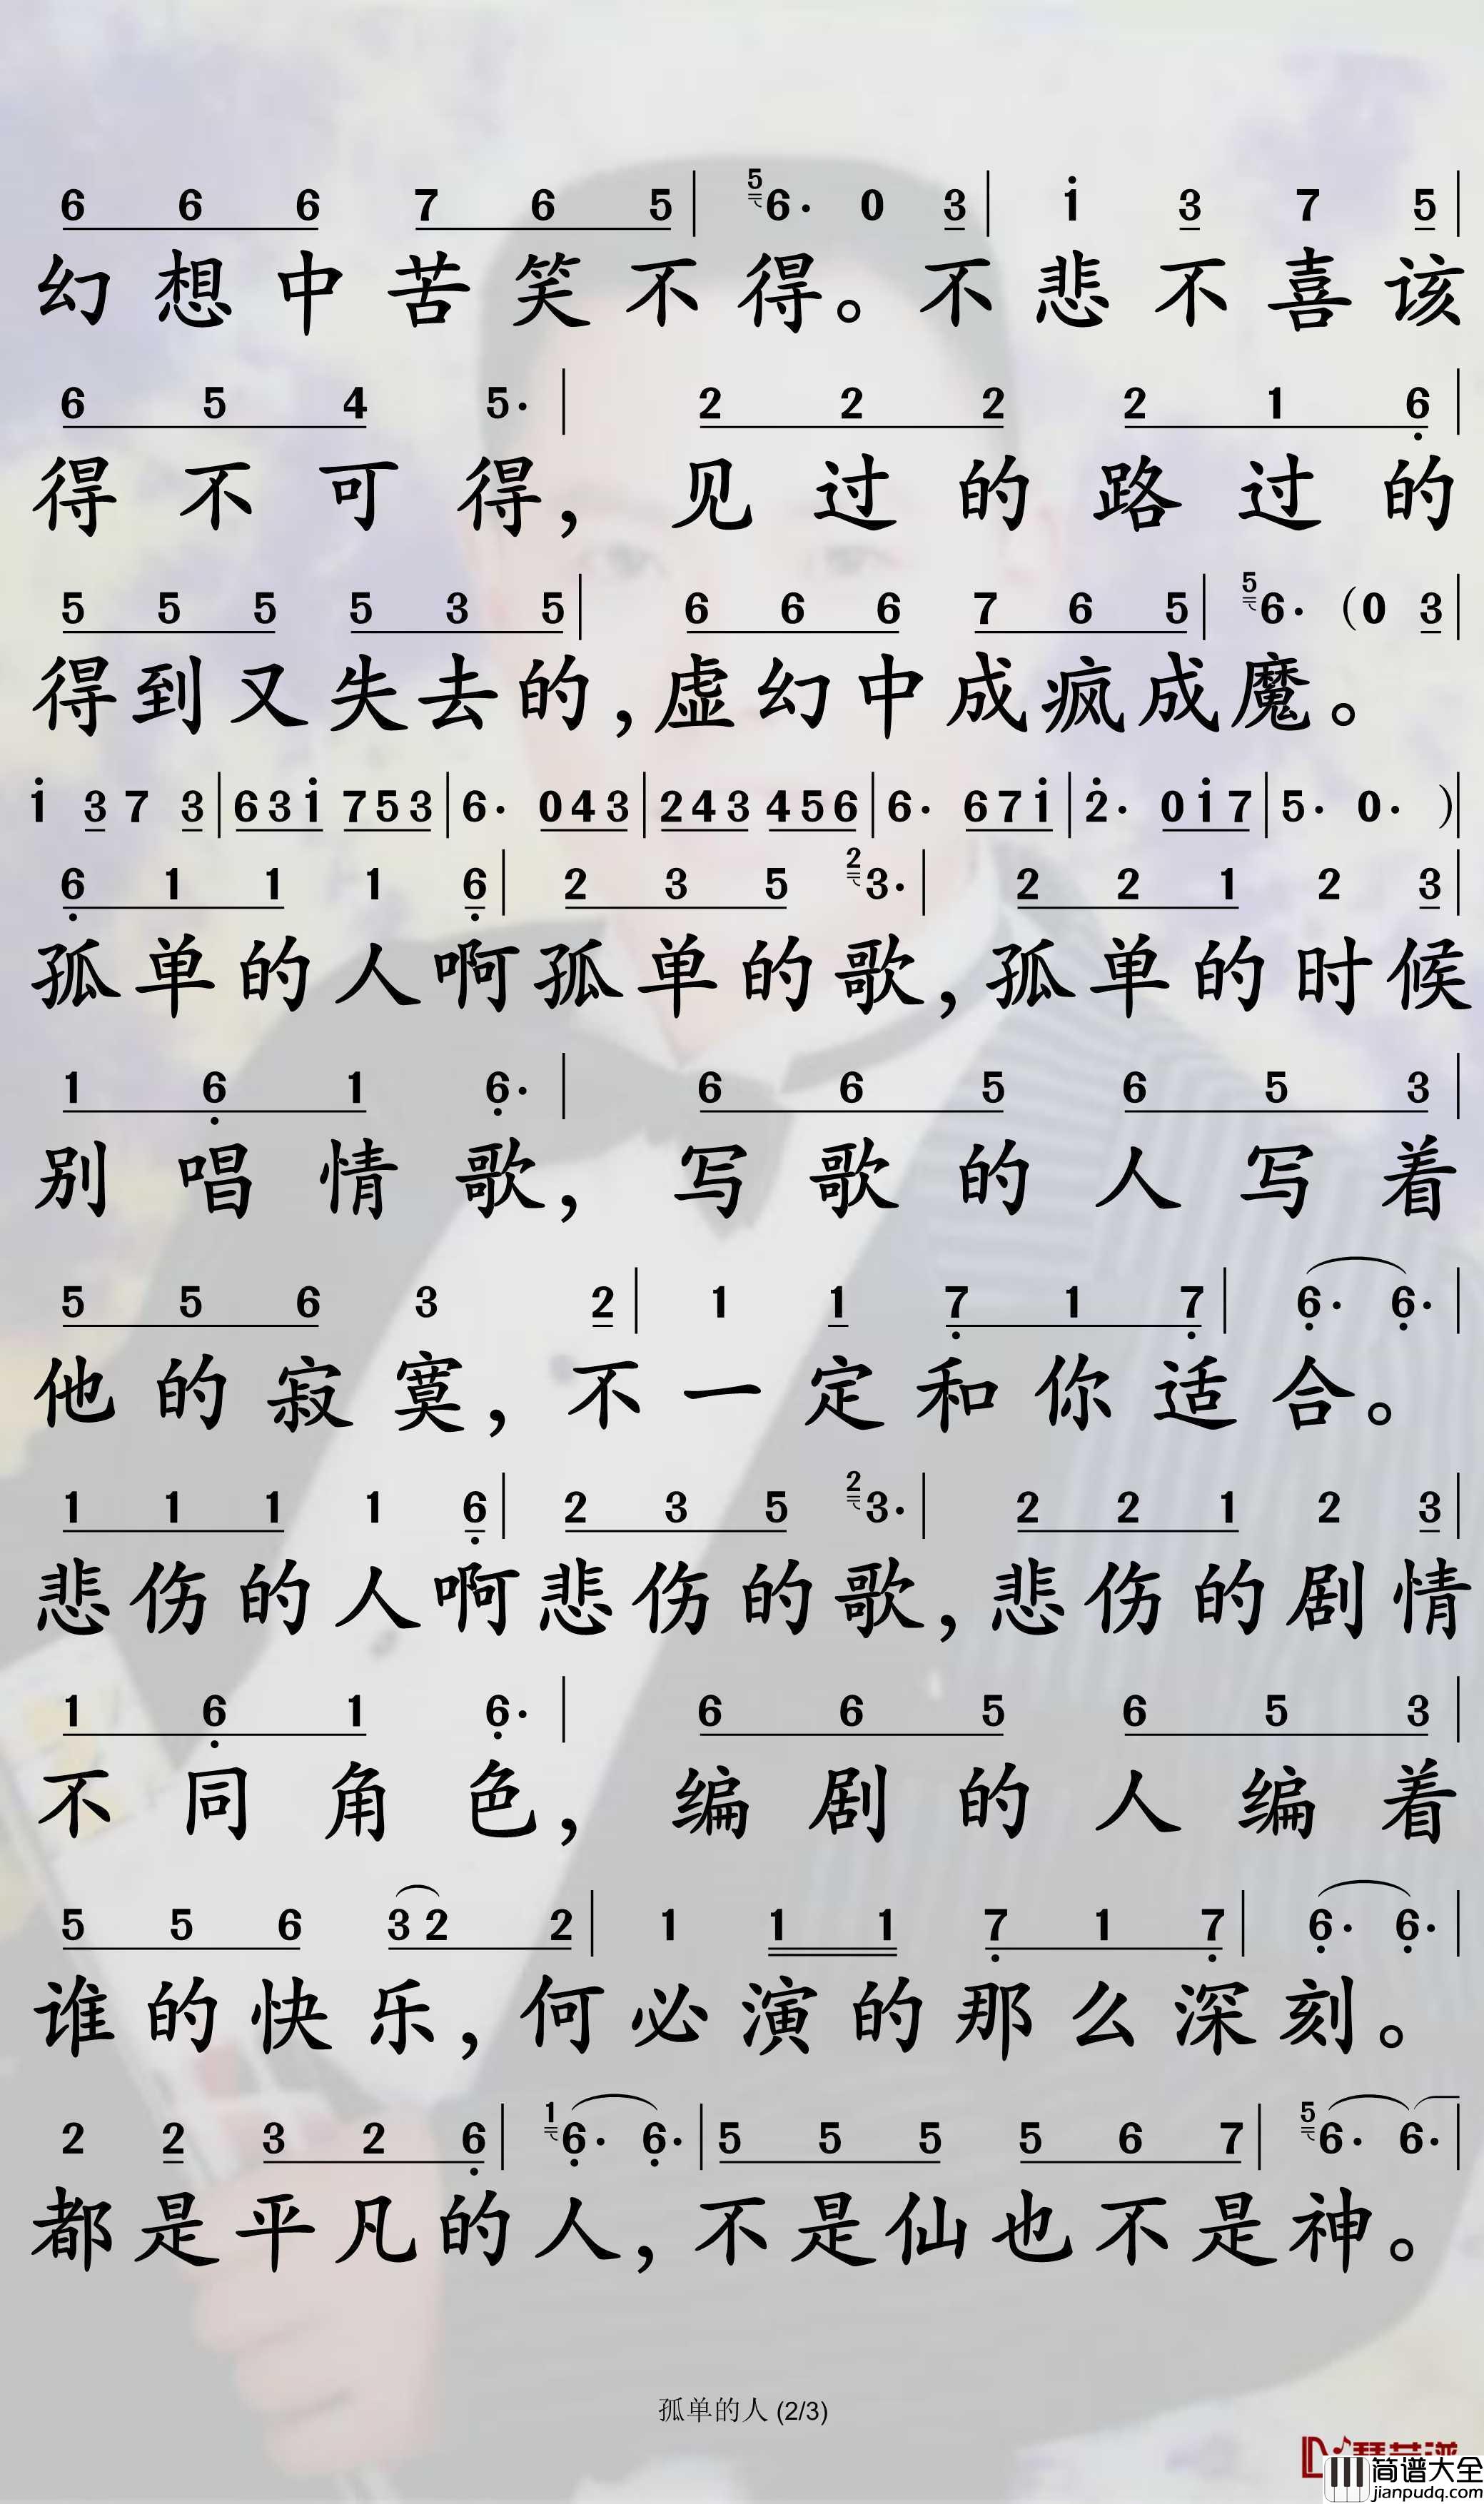 6 6 6 7 6 5 | 5 6· 0 3 | i 3 7 5 |
幻想中苦笑不得。不悲不喜该
6 5 4 5· | 2 2 2 2 1 6̣ |
得不可得，见过的路过的
5 5 5 5 3 5 | 6 6 6 7 6 5 | 5 6· (0 3 |
得到又失去的，虚幻中成疯成魔。
i 3 7 3 | 6 3 i 7 5 3 | 6· 0 4 3 | 2 4 3 4 5 6 | 6· 6 7 i | 2̇· 0 i 7 | 5· 0· )|
6̣ 1 1 1 6̣ | 2 3 5 2 3· | 2 2 1 2 3 |
孤单的人啊孤单的歌，孤单的时候
1 6̣ 1 6̣· | 6 6 5 6 5 3 |
别唱情歌，写歌的人写着
5 5 6 3 2 | 1 1 7̣ 1 7̣ | 6̣· 6̣· |
他的寂寞，不一定和你适合。
1 1 1 1 6̣ | 2 3 5 2 3· | 2 2 1 2 3 |
悲伤的人啊悲伤的歌，悲伤的剧情
1 6̣ 1 6̣· | 6 6 5 6 5 3 |
不同角色，编剧的人编着
5 5 6 3 2 2 | 1 1 1 7̣ 1 7̣ | 6̣· 6̣· |
谁的快乐，何必演的那么深刻。
2 2 3 2 6̣ | 1 6̣· 6̣· | 5 5 5 5 6 7 | 5 6· 6· |
都是平凡的人，不是仙也不是神。
孤单的人 (2/3)
简谱大全
jianpudq.com